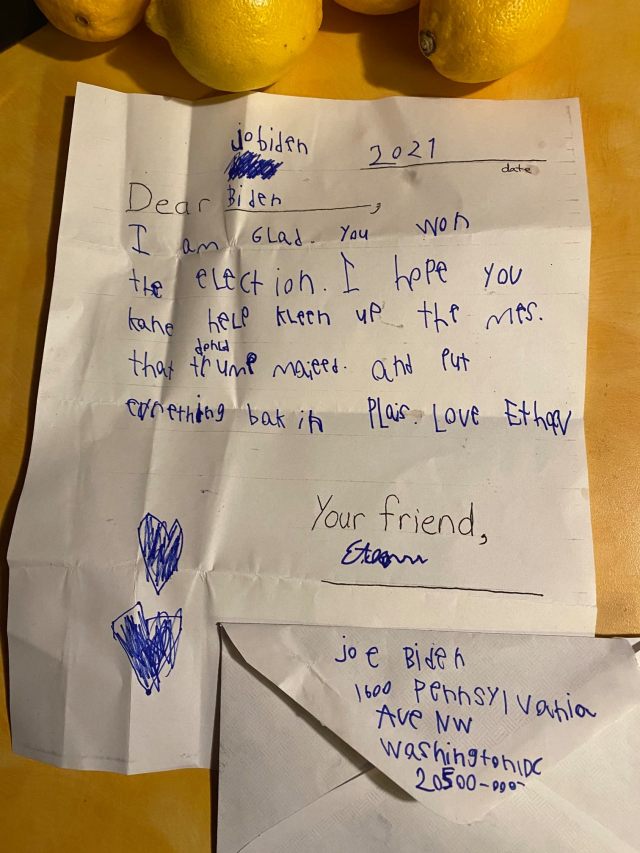 jobiden
2021
date
Dear Biden,
I am GLad. You won
the eLection. I hope you
kane help kleen up the mes.
that donld trump majeed. and put
evrething bak in Plais. Love Ethan
Your friend,
joe Biden
1600 Pennsylvania
Ave NW
Washington, DC
20500-000